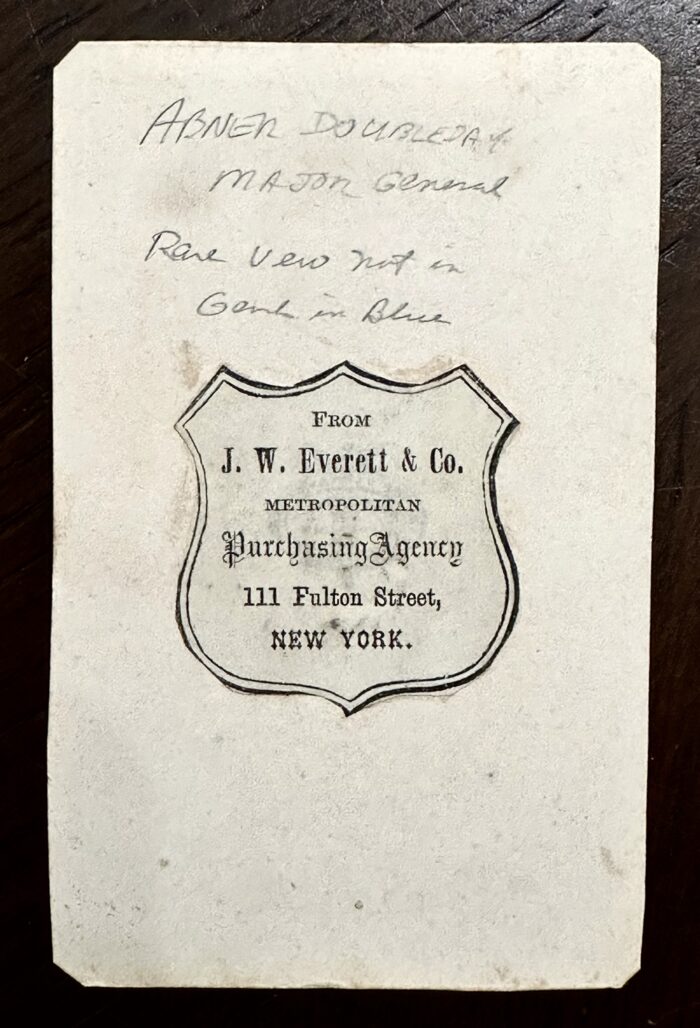 ABNER DOUBLEDAY
MAJOR General
Rare View not in
Genls in Blue
FROM
J. W. Everett & Co.
METROPOLITAN
Purchasing Agency
111 Fulton Street,
NEW YORK.